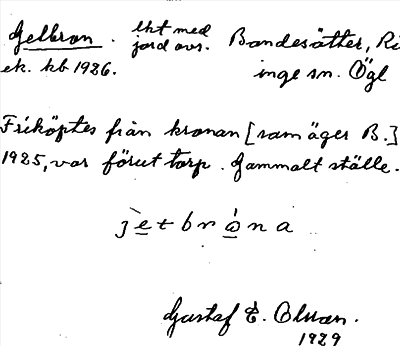 Getbron. lht med
jord avs. Bandesätter, Ri
ek. kb 1926. inge sn. Ögl
Friköptes från kronan [som äger B.]
1925, var förut torp. Gammalt ställe.
jetbrona
Gustaf E. Olsson.
1929